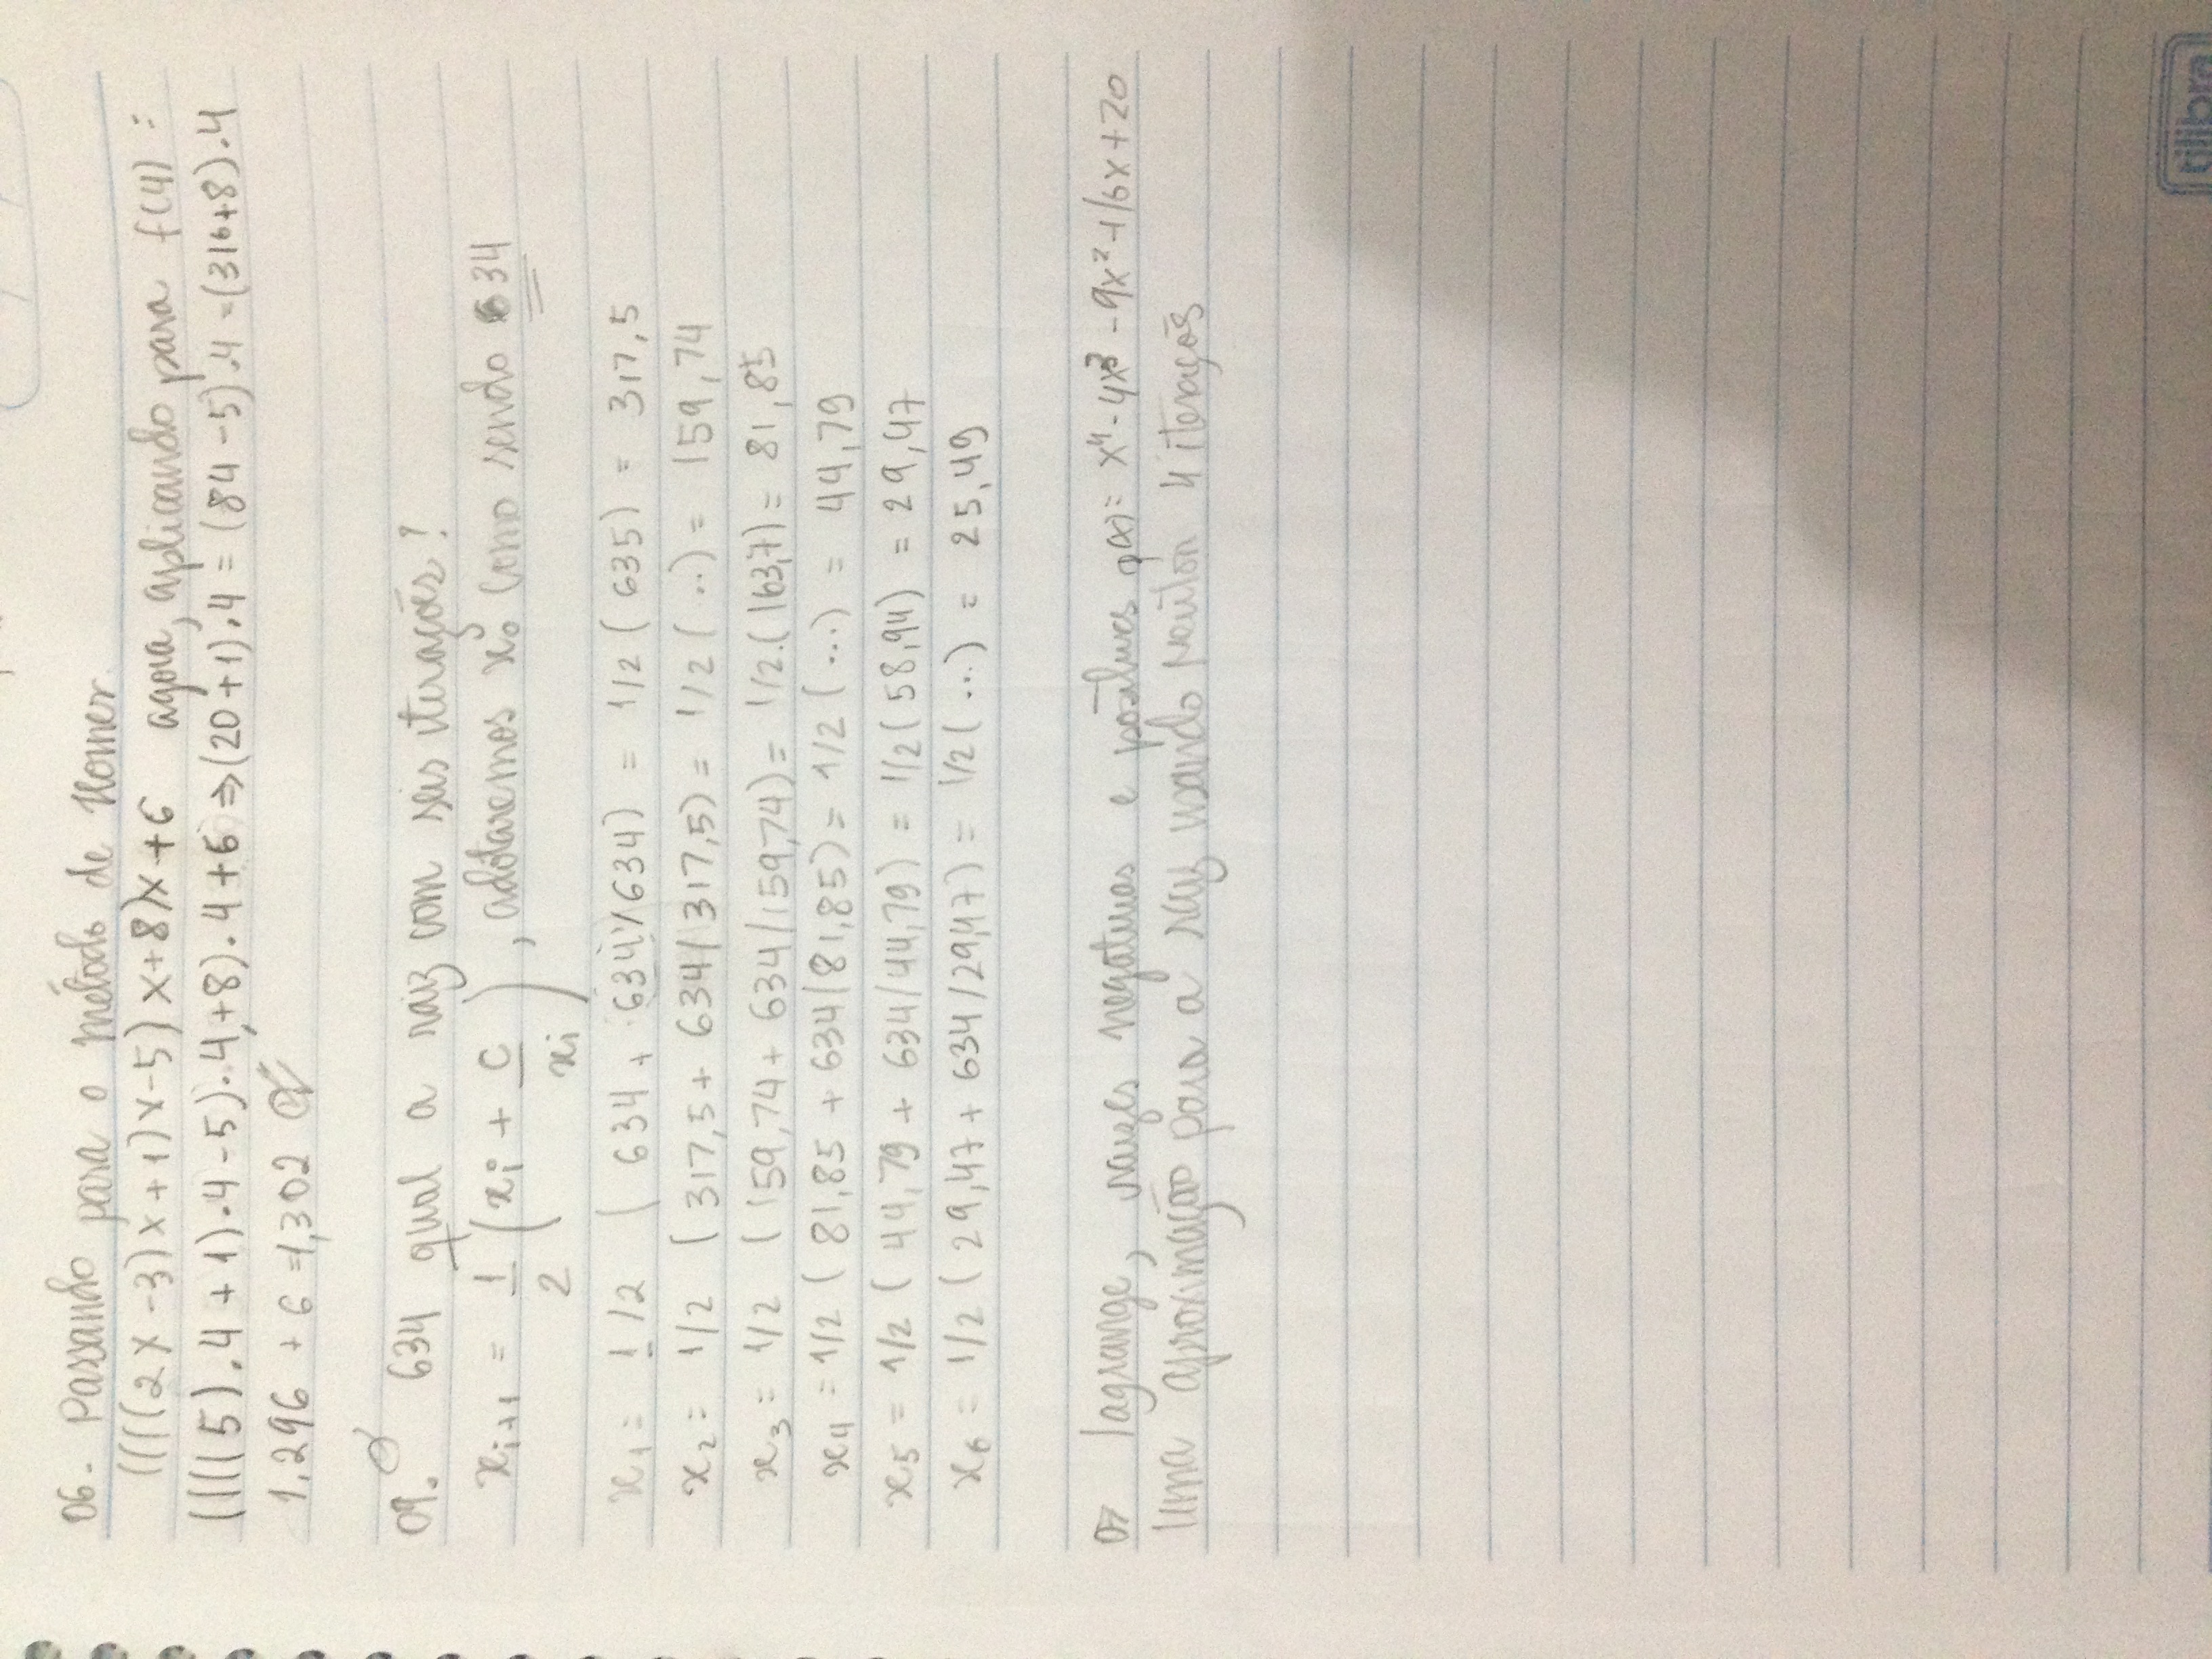 06. Passando para o método de Horner
((((2x -3)x +1)x -5)x+8)x +6 agora, aplicando para f(4) =
((((5).4 + 1).4 -5).4,+8).4 +6 ⇒ (20+1).4 = (84 -5).4 = (316+8).4
1.296 + 6 = 1,302
09. 634 qual a raiz com seis iterações?
x_{i+1} = 1/2 (x_i + c/x_i), adotaremos x_0 como sendo 634
x_1 = 1/2 (634 + 634/634) = 1/2 (635) = 317,5
x_2 = 1/2 (317,5 + 634/317,5) = 1/2 (..) = 159,74
x_3 = 1/2 (159,74 + 634/159,74) = 1/2.(163,7) = 81,85
x_4 = 1/2 (81,85 + 634/81,85) = 1/2 (...) = 44,79
x_5 = 1/2 (44,79 + 634/44,79) = 1/2 (58,94) = 29,47
x_6 = 1/2 (29,47 + 634/29,47) = 1/2 (...) = 25,49
07 lagrange, raizes negativas e positivas p(x) = x^4 - 4x^3 - 9x^2 + 16x + 20
Uma aproximação para a raiz usando Newton 4 iterações
tilibra